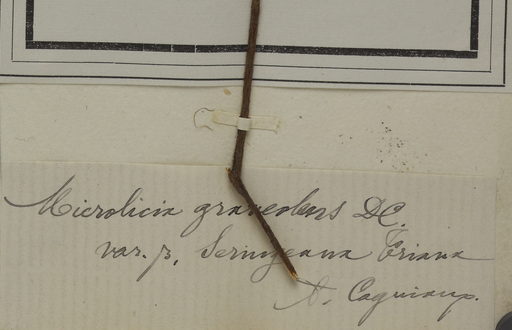 Microlicia graveolens DC.
var. β. Seringeana Triana
A. Cogniaux.